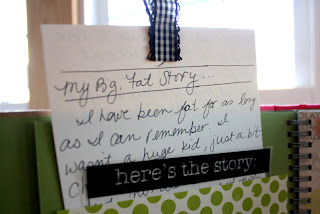 My Bg. Fat Story...
I have been fat for as long
as I can remember. I
wasnt a huge kid, just a bit
here's the story: